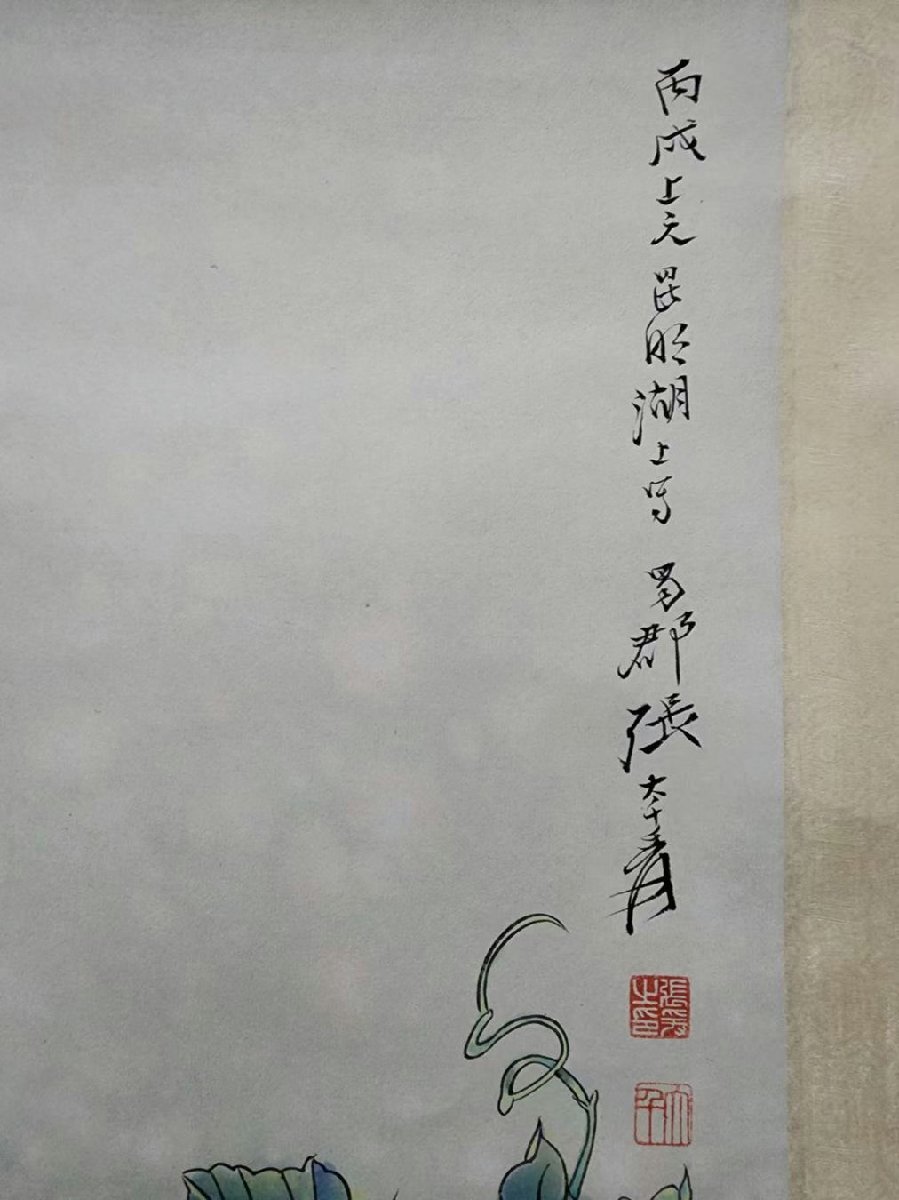 丙戌上元昆明湖上写蜀郡張大千爰
張爰之印
大千